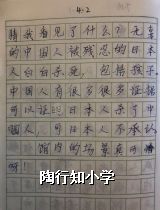 4.2
猜我看见了什么？无辜
的中国人被残忍的日本
人白白杀死，包括孩子
中国人有很多很多证据
可以证明日本人杀了中
国人，可日本人不承认
馆内的场景真可
呀！
陶行知小学